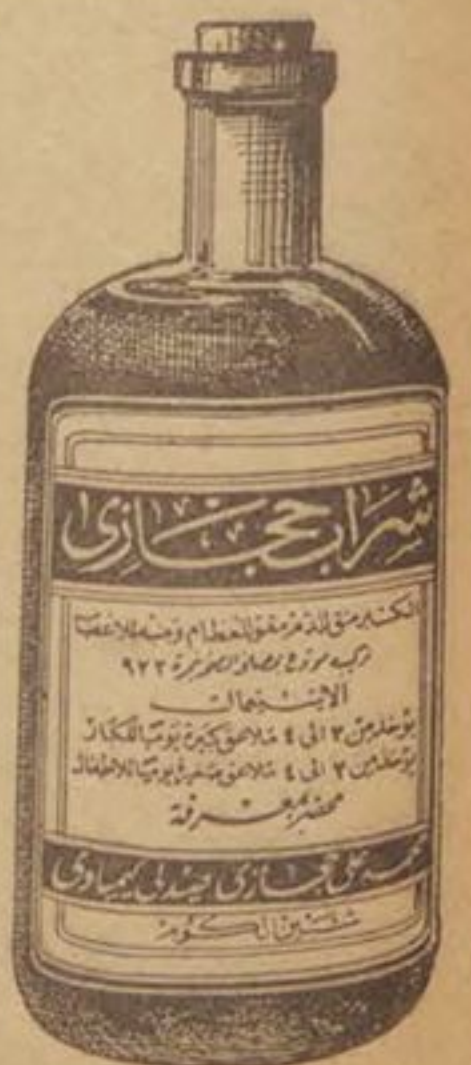 شراب حجازى
اكسير منق للدم مقو للعظام ومنبه للاعصاب
تركيب مودع بمصلحة الصحة نمرة ٩٢٢
الاستعمال
يؤخذ من ٢ الى ٤ ملاعق كبيرة يوميا للكبار
يؤخذ من ٢ الى ٤ ملاعق صغيرة يوميا للاطفال
محضر بمعرفة
محمد على حجازى صيدلى كيماوى
شبين الكوم